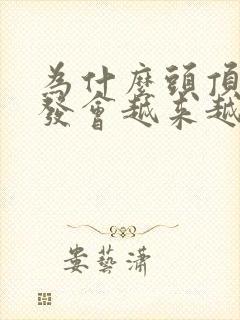 為什麼頭頂
發會越來越
娄藝潇